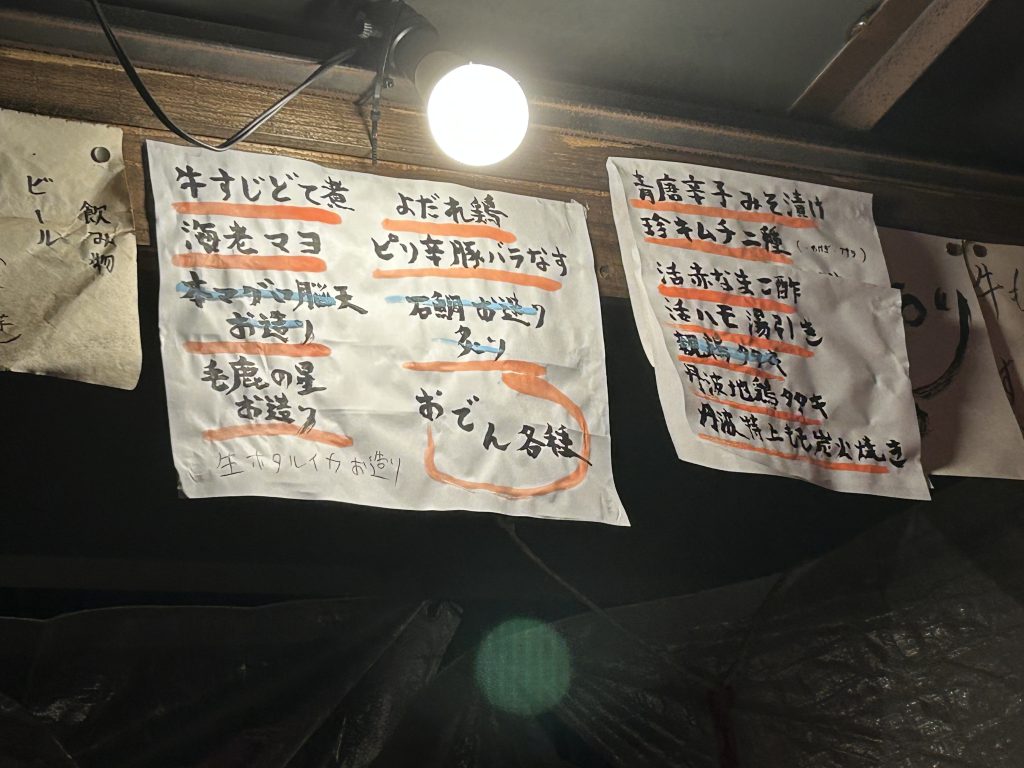 飲み物
ビール
牛すじどて煮
海老マヨ
本マグロ脳天
お造り
毛鹿の星
お造り
生ホタルイカお造り
よだれ鶏
ピリ辛豚バラなす
石鯛お造り
おでん
各種
青唐辛子みそ漬け
珍キムチ二種
活赤なまこ酢
活ハモ湯引き
親鶏タタキ
丹波地鶏タタキ
丹波特上もも炭火焼き
牛